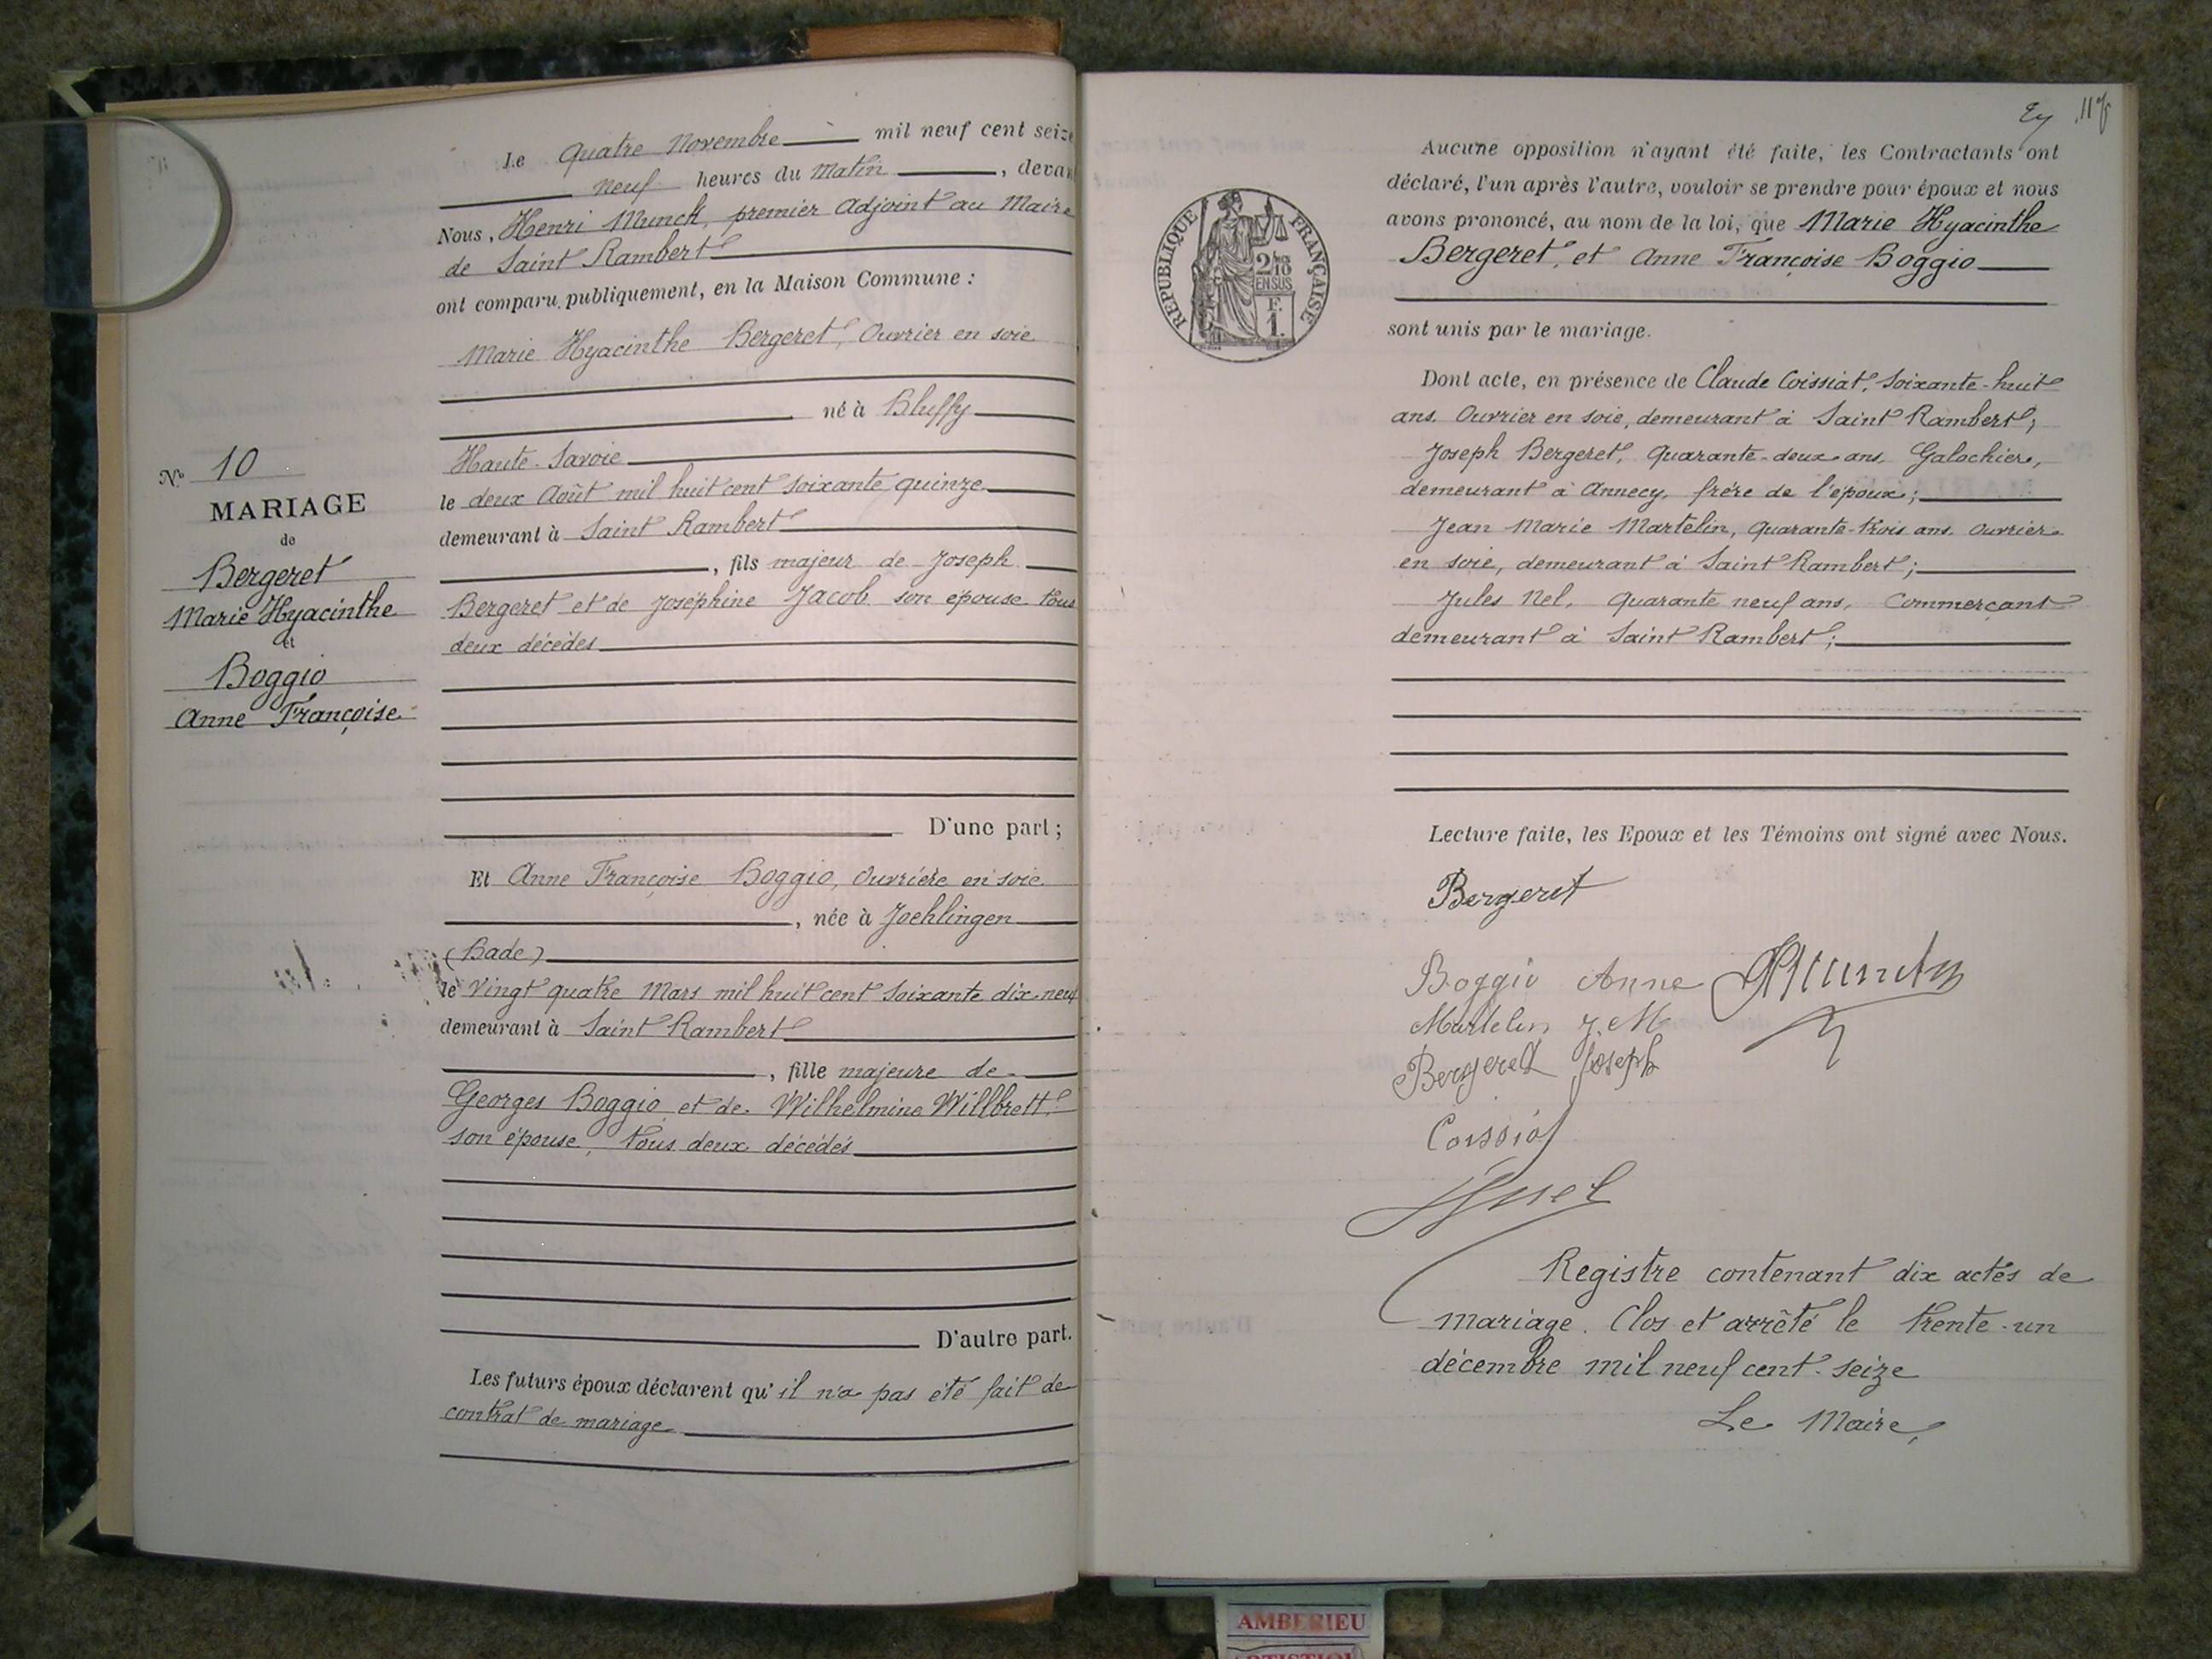 Le quatre Novembre mil neuf cent seize
neuf heures du Matin, devant
Nous, Henri Munck, premier Adjoint au Maire
de Saint Rambert
ont comparu publiquement, en la Maison Commune :
Marie Hyacinthe Bergeret, Ouvrier en soie
né à Bluffy
Haute-Savoie
le deux Août mil huit cent soixante quinze
demeurant à Saint Rambert
, fils majeur de Joseph
Bergeret et de Joséphine Jacob son épouse tous
deux décédés
D'une part ;
Et Anne Françoise Boggio, Ouvrière en soie
, née à Joehlingen
(Bade)
le vingt quatre Mars mil huit cent soixante dix-neuf
demeurant à Saint Rambert
, fille majeure de
Georges Boggio et de Wilhelmine Willbrett
son épouse, tous deux décédés
D'autre part.
Les futurs époux déclarent qu'il n'a pas été fait de
contrat de mariage
No 10
MARIAGE
de
Bergeret
Marie Hyacinthe
et
Boggio
Anne Françoise
Aucune opposition n'ayant été faite, les Contractants ont
déclaré, l'un après l'autre, vouloir se prendre pour époux et nous
avons prononcé, au nom de la loi, que Marie Hyacinthe
Bergeret, et Anne Françoise Boggio
sont unis par le mariage.
REPUBLIQUE FRANÇAISE
2/10
EN SUS
F.
1.
Dont acte, en présence de Claude Coissiat, soixante-huit
ans, Ouvrier en soie, demeurant à Saint Rambert;
Joseph Bergeret, quarante-deux ans, Galochier,
demeurant à Annecy, frère de l'époux;
Jean Marie Martelin, quarante-trois ans, ouvrier
en soie, demeurant à Saint Rambert;
Jules Nel, quarante neuf ans, Commerçant
demeurant à Saint Rambert;
Lecture faite, les Epoux et les Témoins ont signé avec Nous.
Bergeret
Boggio Anne
Martelin J. M
Bergeret Joseph
Coissiat
Registre contenant dix actes de
mariage. Clos et arrêté le trente-un
décembre mil neuf cent-seize
Le Maire,
AMBERIEU